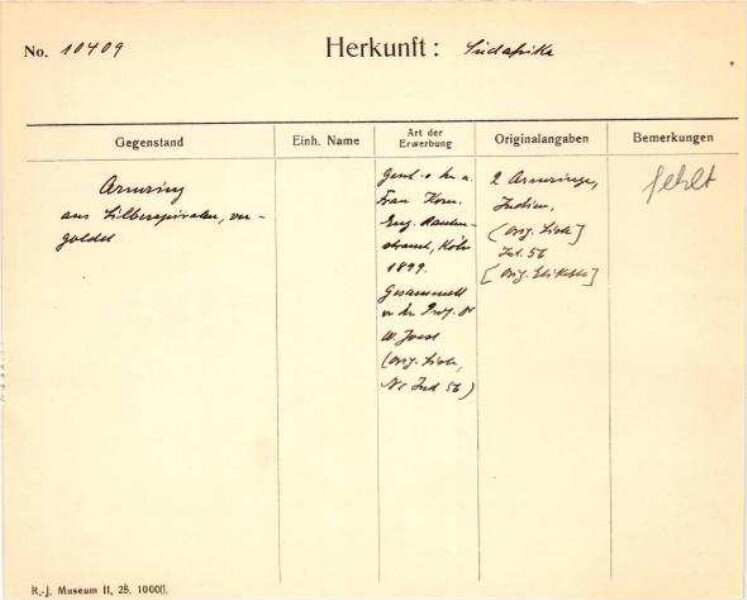 No. 10409 Herkunft: Südafrika
Gegenstand
Einh. Name
Art der
Erwerbung
Originalangaben
Bemerkungen
Armring
aus Silberspiralen, ver-
goldet
Gesch.
Frau Kom.
Eug. Rauten-
strauch, Köln
1899.
Gesammelt
Prof. Dr
W. Joest
(Orig. Liste,
Nr Ind 56)
2 Armringe,
Indien.
(Orig. Liste]
Ind. 56
[Orig. Etikette]
fehlt
R.-J. Museum II, 28. 10000.